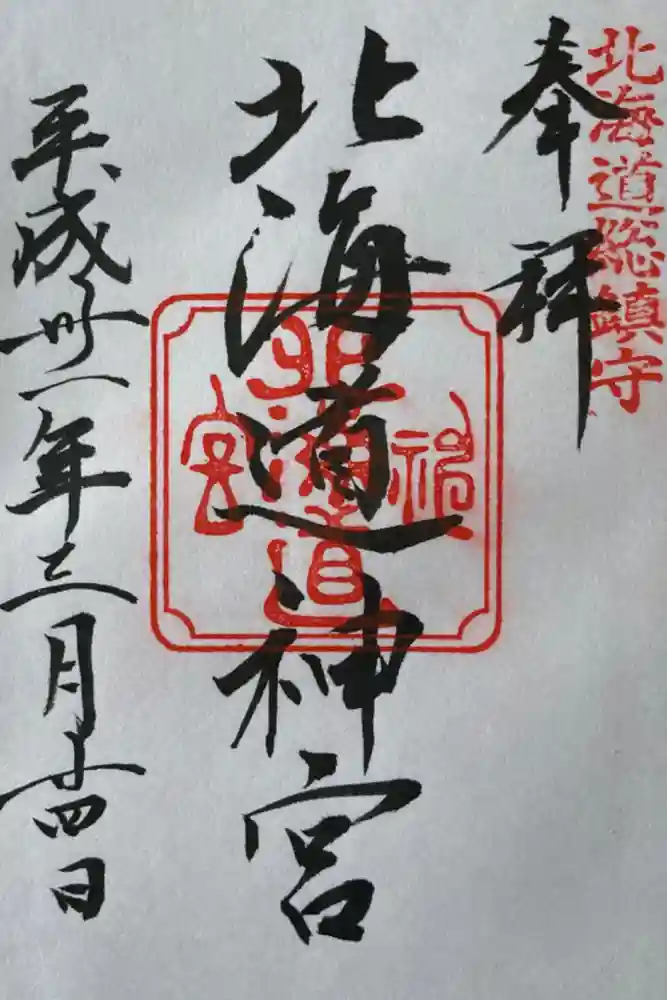 北海道総鎮守
奉拝
北海道神宮
北海道神宮
平成卅一年三月十四日